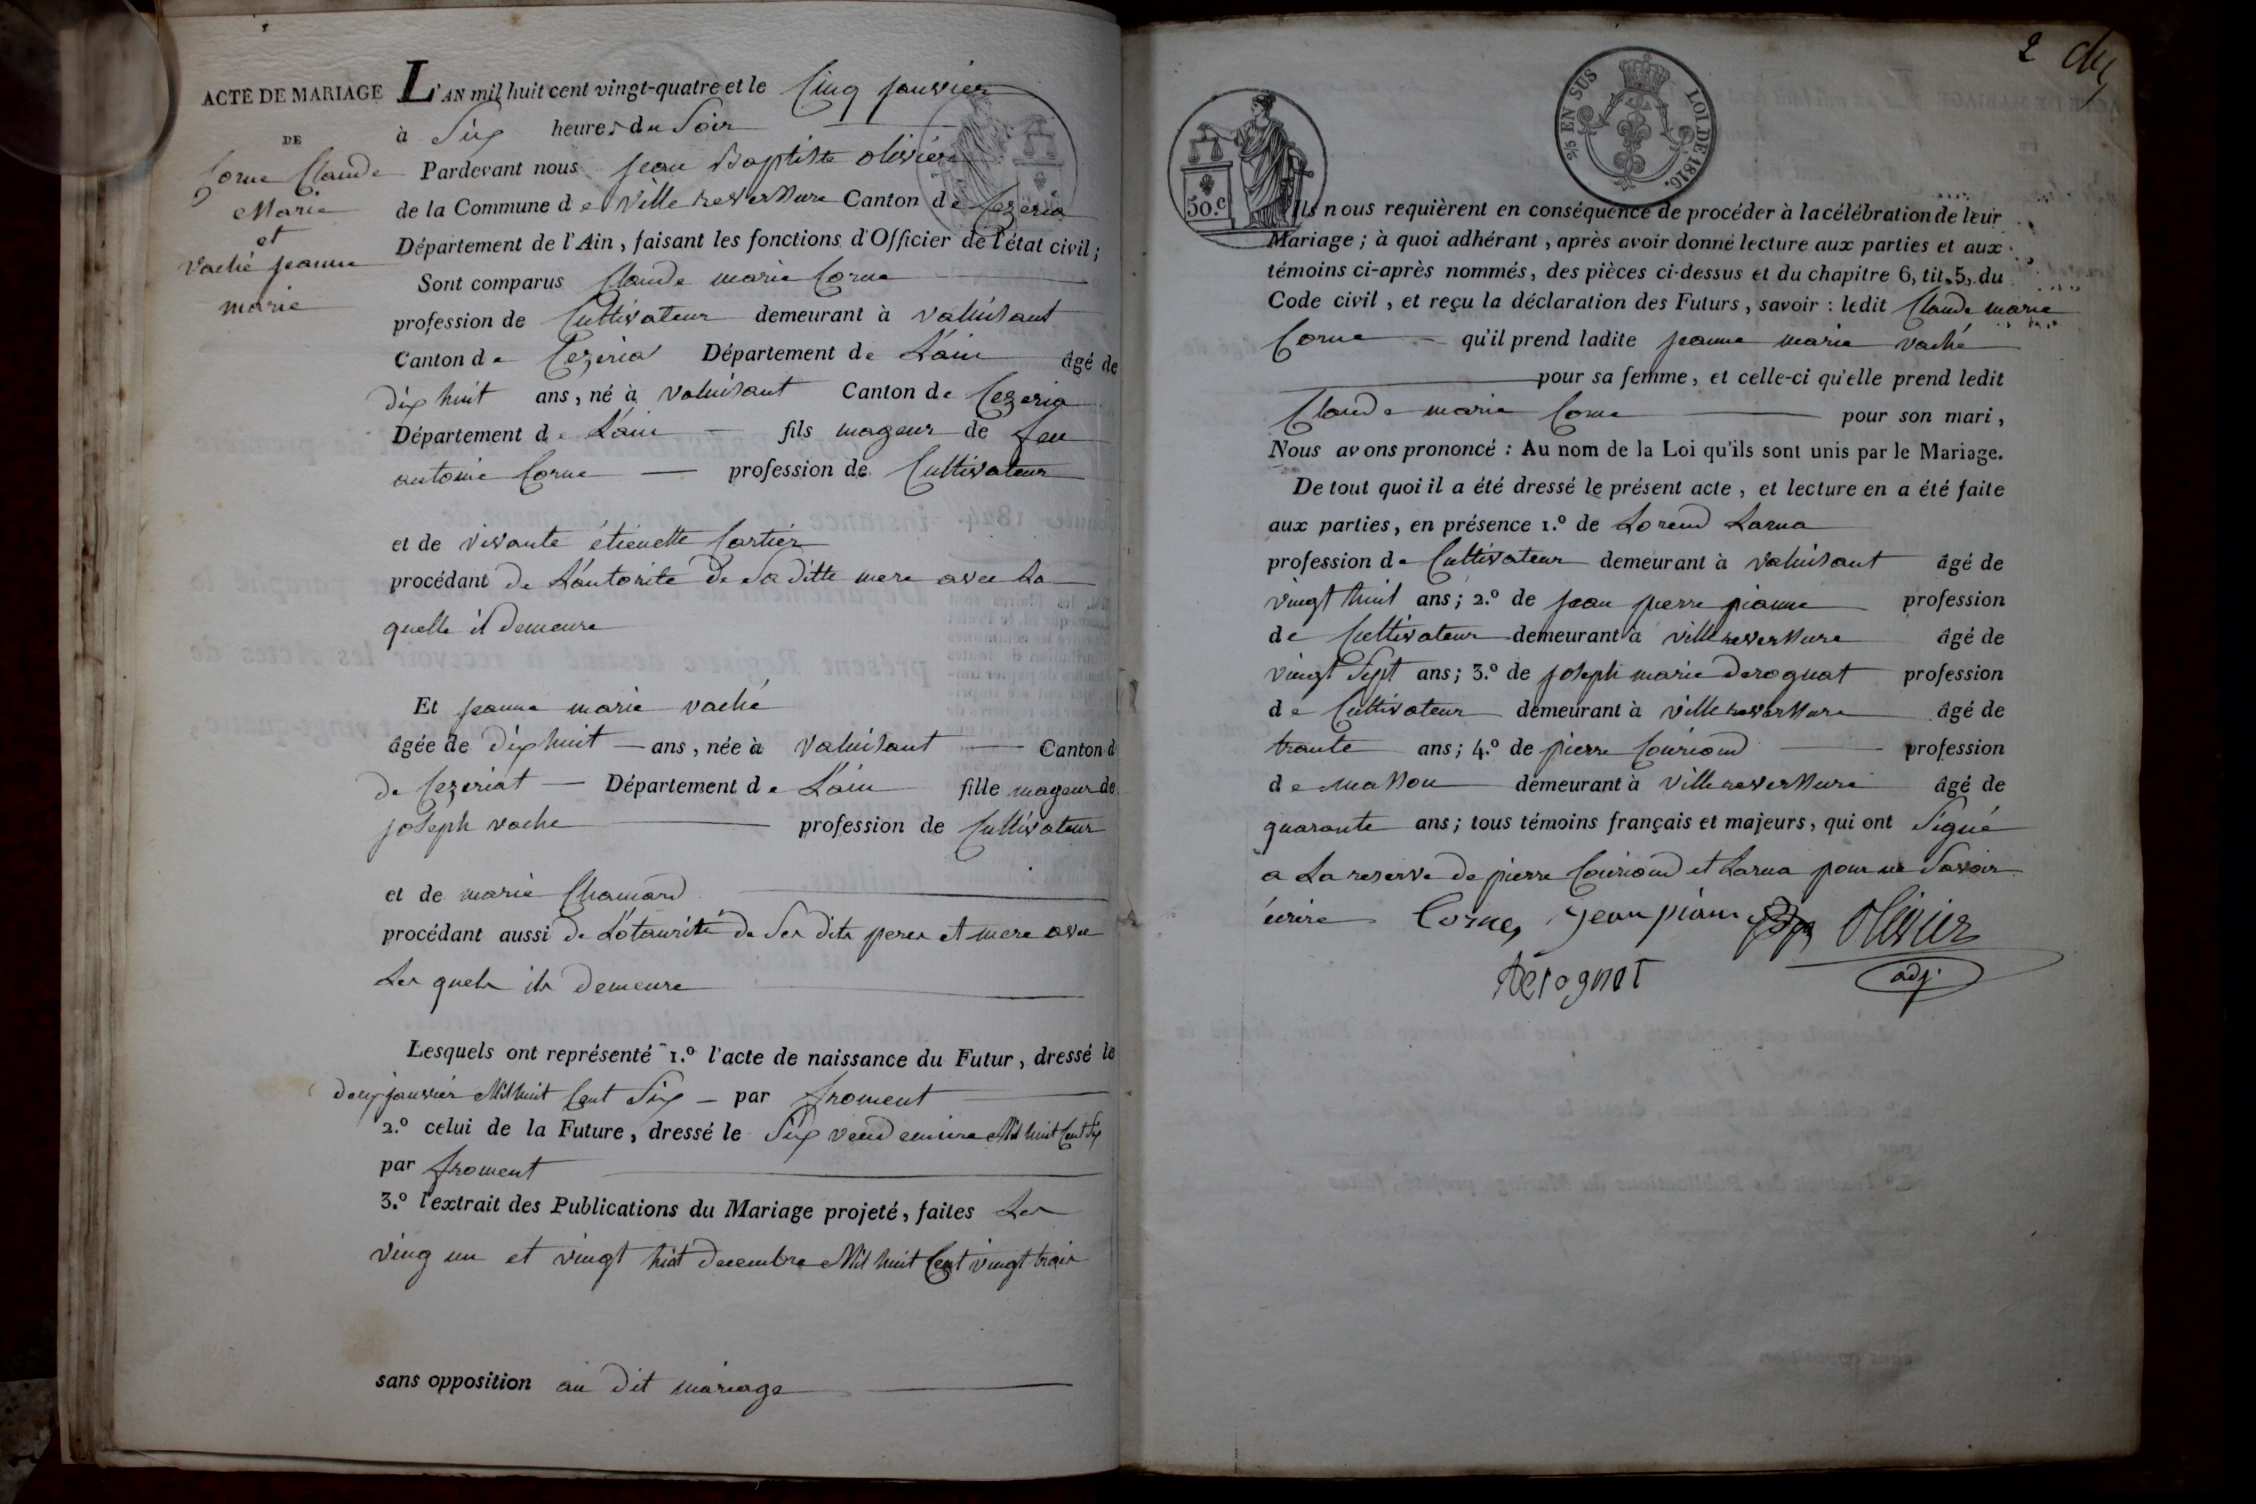 ACTE DE MARIAGE
DE
Corne Claude
Marie
et
vaché jeanne
marie
L'AN mil huit cent vingt-quatre et le Cinq janvier
à Six heures du Soir
Pardevant nous jean Baptiste olivier
de la Commune de Villereversure Canton de Cezeria
Département de l'Ain, faisant les fonctions d'Officier de l'état civil;
Sont comparus Claude marie Corne
profession de Cultivateur demeurant à valuisant
Canton de Cezeria Département de L'ain âgé de
dix huit ans, né à valuisant Canton de Cezeria
Département de L'ain fils mageur de feu
antoine Corne profession de Cultivateur
et de vivante étienette Cartier
procédant de L'autorite de Sa ditte mere avec La
quelle il demeure
Et jeanne marie vaché
âgée de dix huit ans, née à valuisant Canton d
de Cezeriat Département de L'ain fille mageur de
joseph vache profession de Cultivateur
et de marie Chamard
procédant aussi de L'otaurité de Ses dits peres et mere avec
Les quels ils demeure
Lesquels ont représenté 1.º l'acte de naissance du Futur, dressé le
deux janvier Mil huit Cent Six par froment
2.º celui de la Future, dressé le Six vendemiaire Mil huit Cent Six
par froment
3.º l'extrait des Publications du Mariage projeté, faites Les
ving un et vingt huit decembre Mil huit Cent vingt trois
sans opposition au dit mariage
2
50.c
2/5 EN SUS LOI DE 1816.
Ils nous requièrent en conséquence de procéder à la célébration de leur
Mariage; à quoi adhérant, après avoir donné lecture aux parties et aux
témoins ci-après nommés, des pièces ci-dessus et du chapitre 6, tit. 5, du
Code civil, et reçu la déclaration des Futurs, savoir : ledit Claude marie
Corne qu'il prend ladite jeanne marie vaché
pour sa femme, et celle-ci qu'elle prend ledit
Claude marie Corne pour son mari,
Nous avons prononcé : Au nom de la Loi qu'ils sont unis par le Mariage.
De tout quoi il a été dressé le présent acte, et lecture en a été faite
aux parties, en présence 1.º de Lorend Larua
profession de Cultivateur demeurant à valuisant âgé de
vingt huit ans; 2.º de jean pierre pianne profession
de Cultivateur demeurant à villereversure âgé de
vingt Sept ans; 3.º de joseph marie derognat profession
de Cultivateur demeurant à villereversure âgé de
trante ans; 4.º de pierre Couriond profession
de masson demeurant à villereversure âgé de
quarante ans; tous témoins français et majeurs, qui ont Signé
a La reserve de pierre Couriond et Larua pour ne Savoir
écrire Corne, jean piane olivier
Dérognat adj.